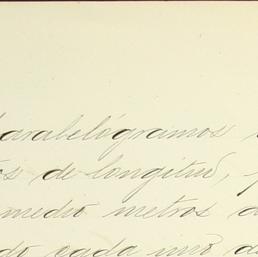 paralelógramos
de longitud,
medio metros
cada uno de